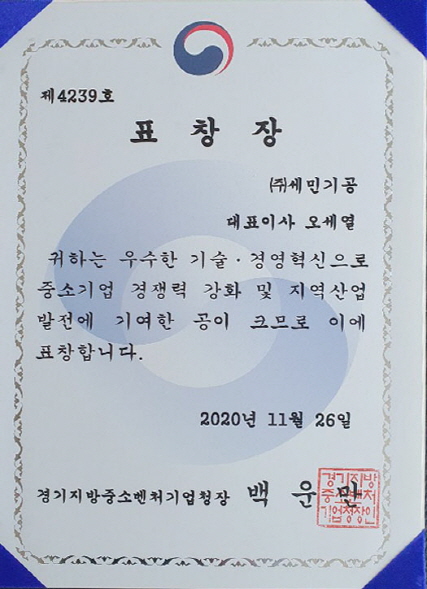 제4239호
표 창 장
㈜세민기공
대표이사 오세열
귀하는 우수한 기술·경영혁신으로
중소기업 경쟁력 강화 및 지역산업
발전에 기여한 공이 크므로 이에
표창합니다.
2020년 11월 26일
경기지방중소벤처기업청장 백 운 만
경기지방
중소벤처
기업청장인